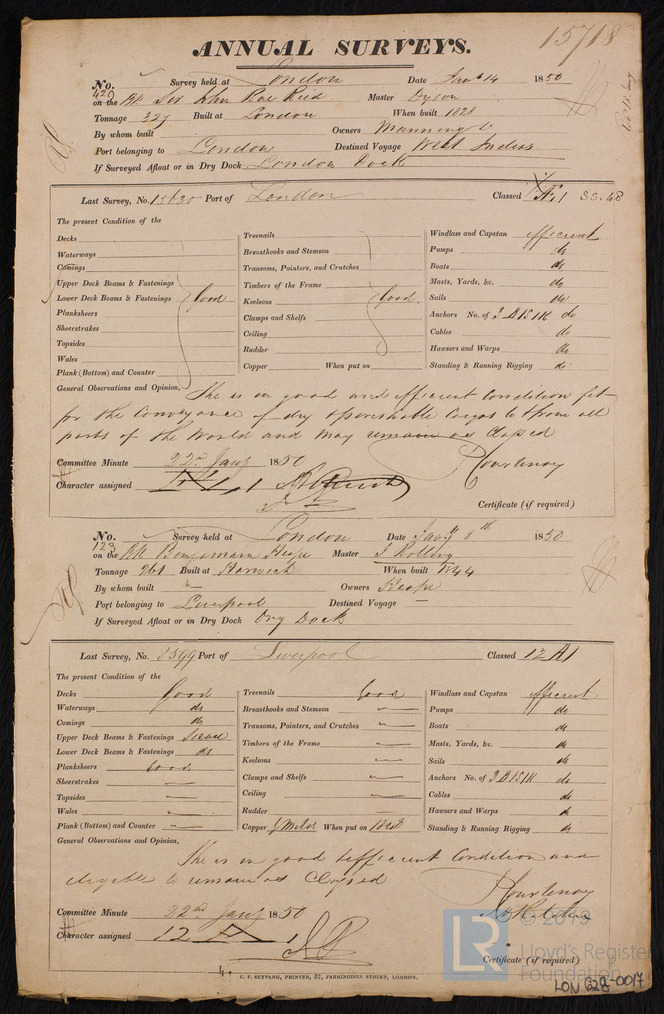 15718
ANNUAL SURVEYS.
No. 420 Survey held at London Date Jany 14 1850
on the Bk Sir John Rae Reid Master Dyson
Tonnage 327 Built at London When built 1828
By whom built Owners Manning
Port belonging to London Destined Voyage West Indies
If Surveyed Afloat or in Dry Dock London Dock
Last Survey, No. 15620 Port of London Classed SS. 48
The present Condition of the
Decks Treenails Windlass and Capstan efficient
Waterways Breasthooks and Stemson Pumps do
Comings Transoms, Pointers, and Crutches Boats do
Upper Deck Beams & Fastenings Timbers of the Frame Masts, Yards, &c. do
Lower Deck Beams & Fastenings Good Keelsons Good Sails do
Planksheers Clamps and Shelfs Anchors No. of 3 B 1 S 1 K do
Sheerstrakes Ceiling Cables do
Topsides Rudder Hawsers and Warps do
Wales Copper When put on Standing & Running Rigging do
Plank (Bottom) and Counter
General Observations and Opinion, She is in good and efficient condition fit
for the conveyance of dry & perishable Cargos to & from all
parts of the World and may remain as Classed
Committee Minute 22nd Jany 1850 Courtenay
Character assigned
Certificate (if required)
No. 123 Survey held at London Date Jany 5th 1850
on the Bk Benjamin Heape Master J Rolling
Tonnage 261 Built at Harwich When built 1844
By whom built — Owners Heape
Port belonging to Liverpool Destined Voyage —
If Surveyed Afloat or in Dry Dock Dry Dock
Last Survey, No. 2599 Port of Liverpool Classed 12 A1
The present Condition of the
Decks Good Treenails Good Windlass and Capstan efficient
Waterways do Breasthooks and Stemson — Pumps do
Comings do Transoms, Pointers, and Crutches — Boats do
Upper Deck Beams & Fastenings Secure Timbers of the Frame — Masts, Yards, &c. do
Lower Deck Beams & Fastenings do Keelsons — Sails do
Planksheers Good Clamps and Shelfs — Anchors No. of 3 B 1 S 1 K do
Sheerstrakes — Ceiling — Cables do
Topsides — Rudder — Hawsers and Warps do
Wales — Copper Y Metal When put on 1848 Standing & Running Rigging do
Plank (Bottom) and Counter —
General Observations and Opinion,
She is in good & efficient Condition and
eligible to remain as Classed
Courtenay
Committee Minute 22nd Jany 1850
Character assigned 12 A 1
Certificate (if required)
C. F. SEYFANG, PRINTER, 57, FARRINGDON STREET, LONDON.
LR © 2019
Lloyd's Register
Foundation
LON 628-0017